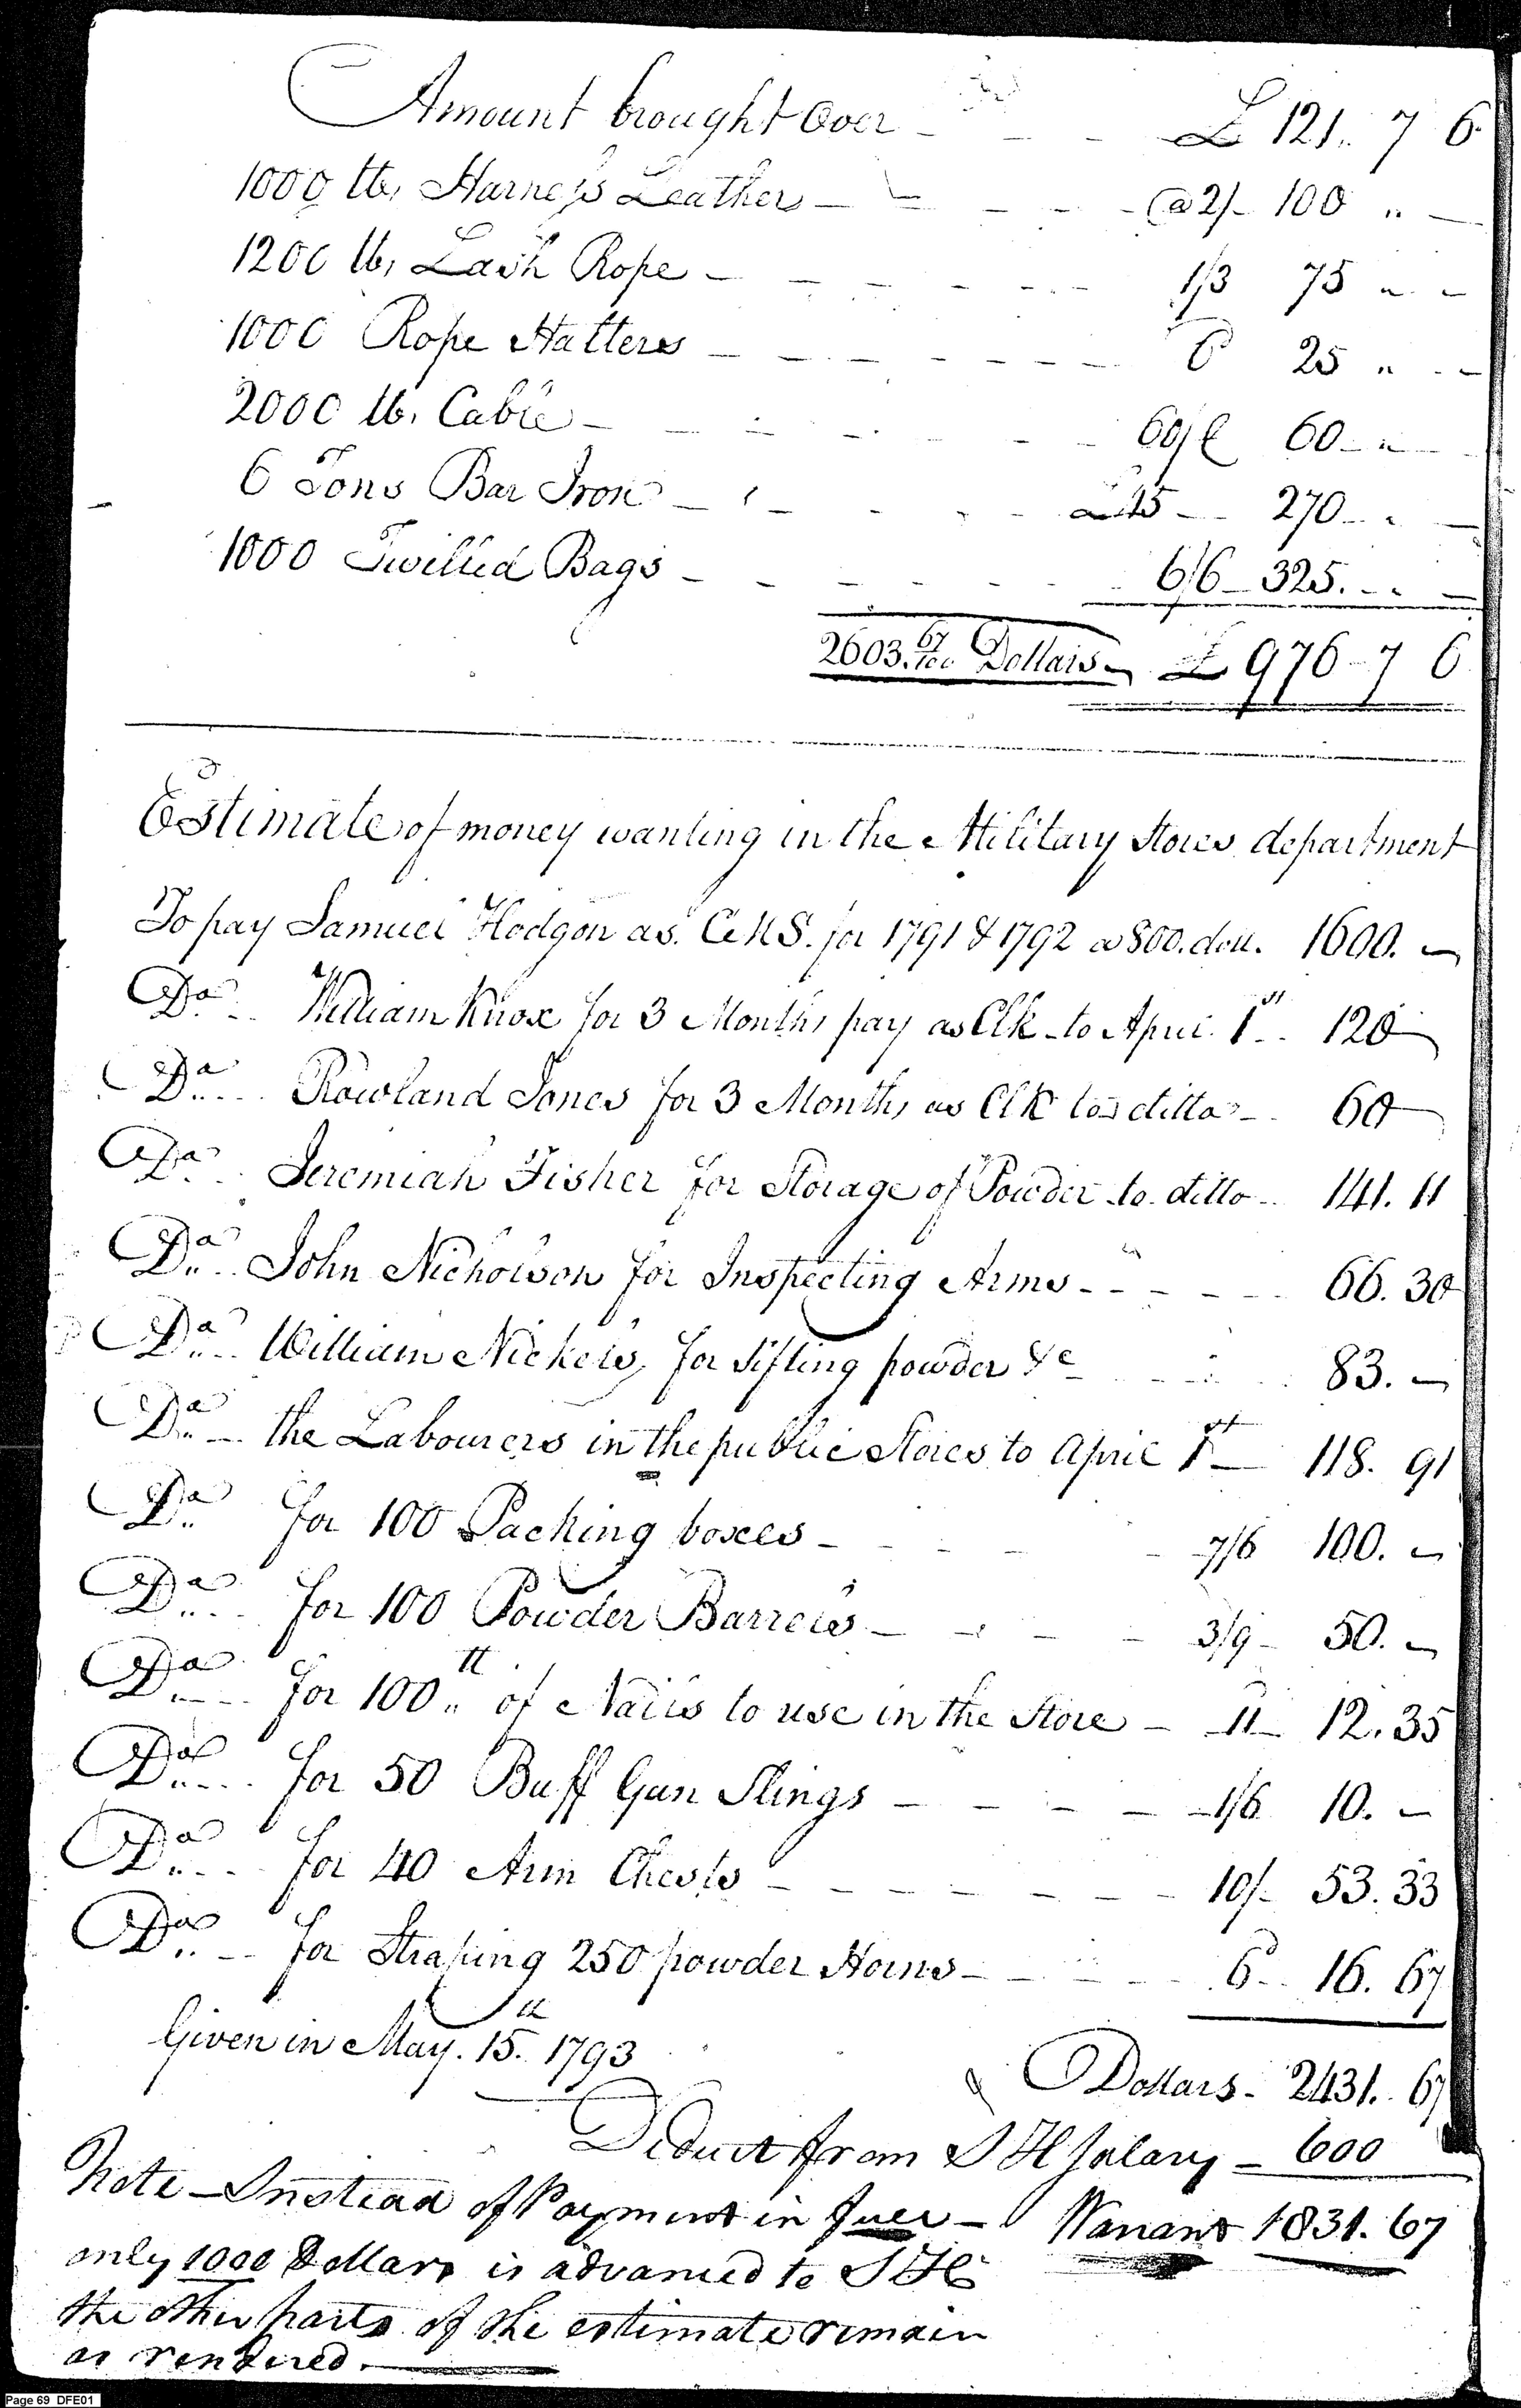 Amount brought Over - - - £ 121.. 7 6
1000 lb, Harness Leather - - - - @ 2/- 100 .. -
1200 lb, Lash Rope - - - - - 1/3 75 .. -
1000 Rope Halters - - - - - - 6 25 .. -
2000 lb. Cable - - - - - - 60/C 60 - .. -
6 Tons Bar Iron - - - - - - £45 - 270 - . -
1000 Twilled Bags - - - - - - 6/6 - 325. - . -
2603. 67/100 Dollars - £ 976 - 7 6
Estimate of money wanting in the Military Stores department
To pay Samuel Hodgon as C.M.S. for 1791 & 1792 @ 800. doll. 1600. -
Do. .. William Knox for 3 Months pay as Clk - to April 1st .. 120 -
Do.... Rowland Jones for 3 Months as Clk to ditto - 60 -
Do. .. Jeremiah Fisher for Storage of Powder to ditto .. 141. 11
Do... John Nicholson for Inspecting Arms - - - - - 66. 30
Do... William Nickels, for Sifting powder &c - - - 83. -
Do.. - the Labourers in the public Stores to April 1st - 118. 91
Do.. for 100 Packing boxes - - - - - 7/6 100. -
Do.... for 100 Powder Barrels - - - - 3/9 - 50. -
Do.... for 100 lb of Nails to use in the Store - 11d - 12. 35
Do.... for 50 Buff Gun Slings - - - - - 1/6 10. -
Do.... for 40 Arm Chests - - - - - - 10/- 53. 33
Do.. - for Straping 250 powder Horns - - - - 6d .. 16. 67
Given in May. 15.th 1793
Dollars - 2431. 67
Deduct from S H Salary - 600
Note - Instead of Payment in full - Warrant 1831. 67
only 1000 Dollars is advanced to S H
the other parts of the estimate remain
as rendered. -
Page 69 DFE01